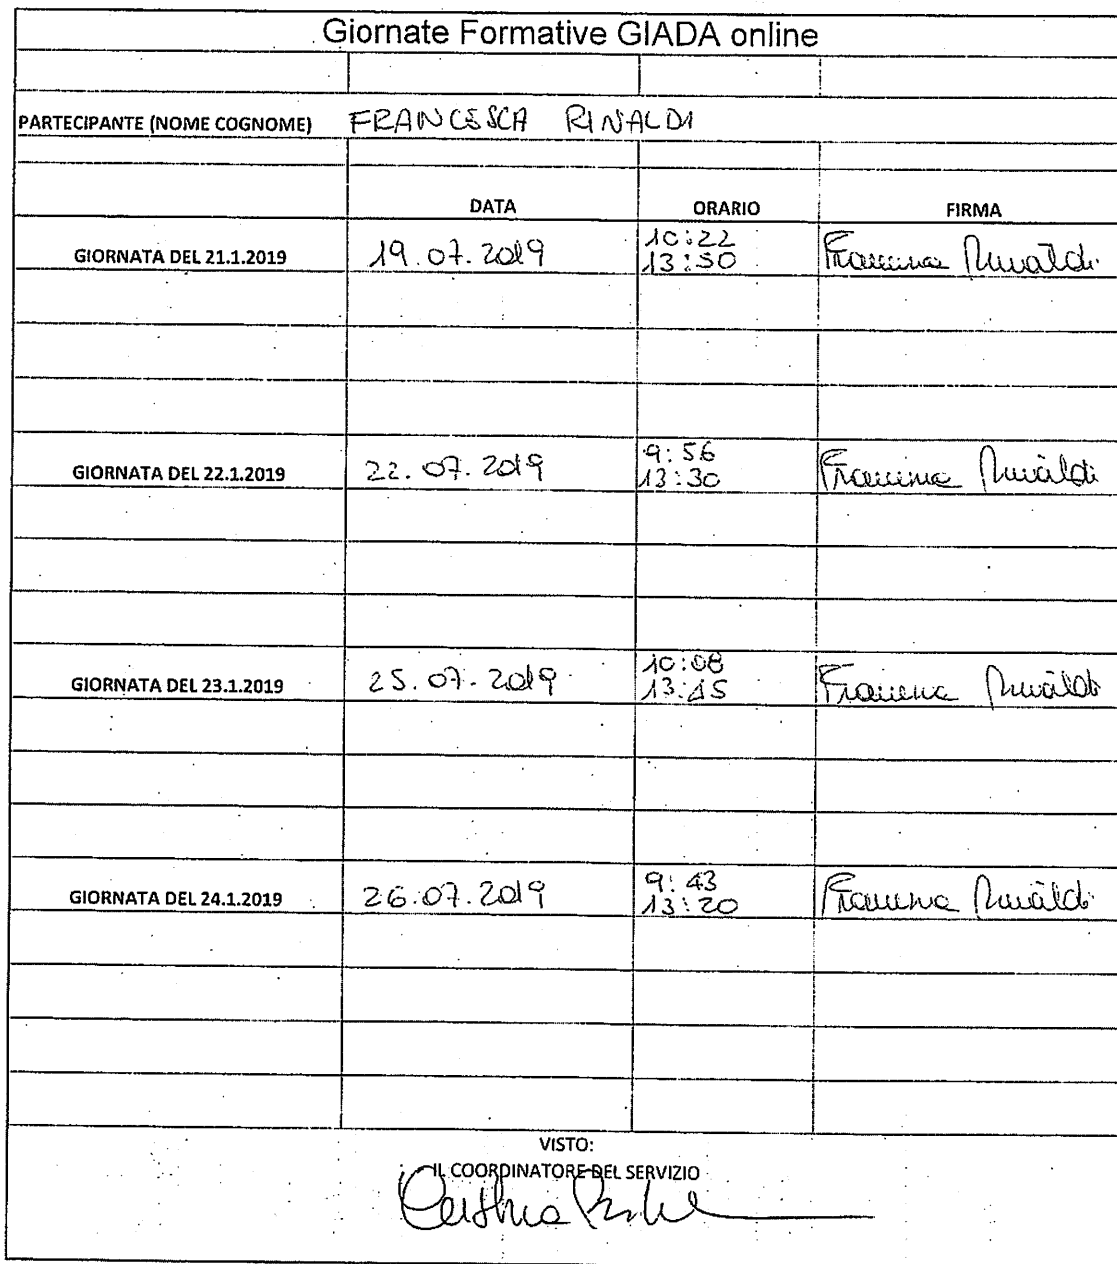 Giornate Formative GIADA online
PARTECIPANTE (NOME COGNOME) FRANCESCA RINALDI
DATA ORARIO FIRMA
10:22
GIORNATA DEL 21.1.2019 19.07.2019 13:50 Francesca Rinaldi
9:56
GIORNATA DEL 22.1.2019 22.07.2019 13:30 Francesca Rinaldi
10:08
GIORNATA DEL 23.1.2019 25.07.2019 13:15 Francesca Rinaldi
9:43
GIORNATA DEL 24.1.2019 26.07.2019 13:20 Francesca Rinaldi
VISTO:
IL COORDINATORE DEL SERVIZIO